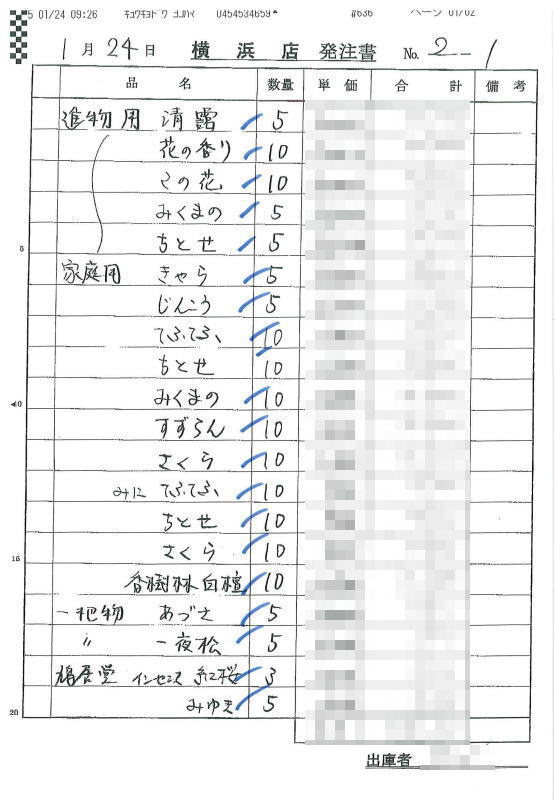 5 01/24 09:26 ｷｭｳｷｮﾄﾞｳ ﾖｺﾊﾏ 0454534659 #636 ページ 01/02
1月24日 横浜店 発注書 No. 2-1
品名 数量 単価 合計 備考
進物用 清露 5
花の香り 10
その花 10
みくまの 5
ちとせ 5
5
家庭用 きゃら 5
じんこう 5
てふてふ 10
ちとせ 10
みくまの 10
10
すずらん 10
さくら 10
みに てふてふ 10
ちとせ 10
さくら 10
15
香樹林白檀 10
一把物 あづさ 5
〃 一夜松 5
鳩居堂 インセンス 紅桜 3
みゆき 5
20
出庫者